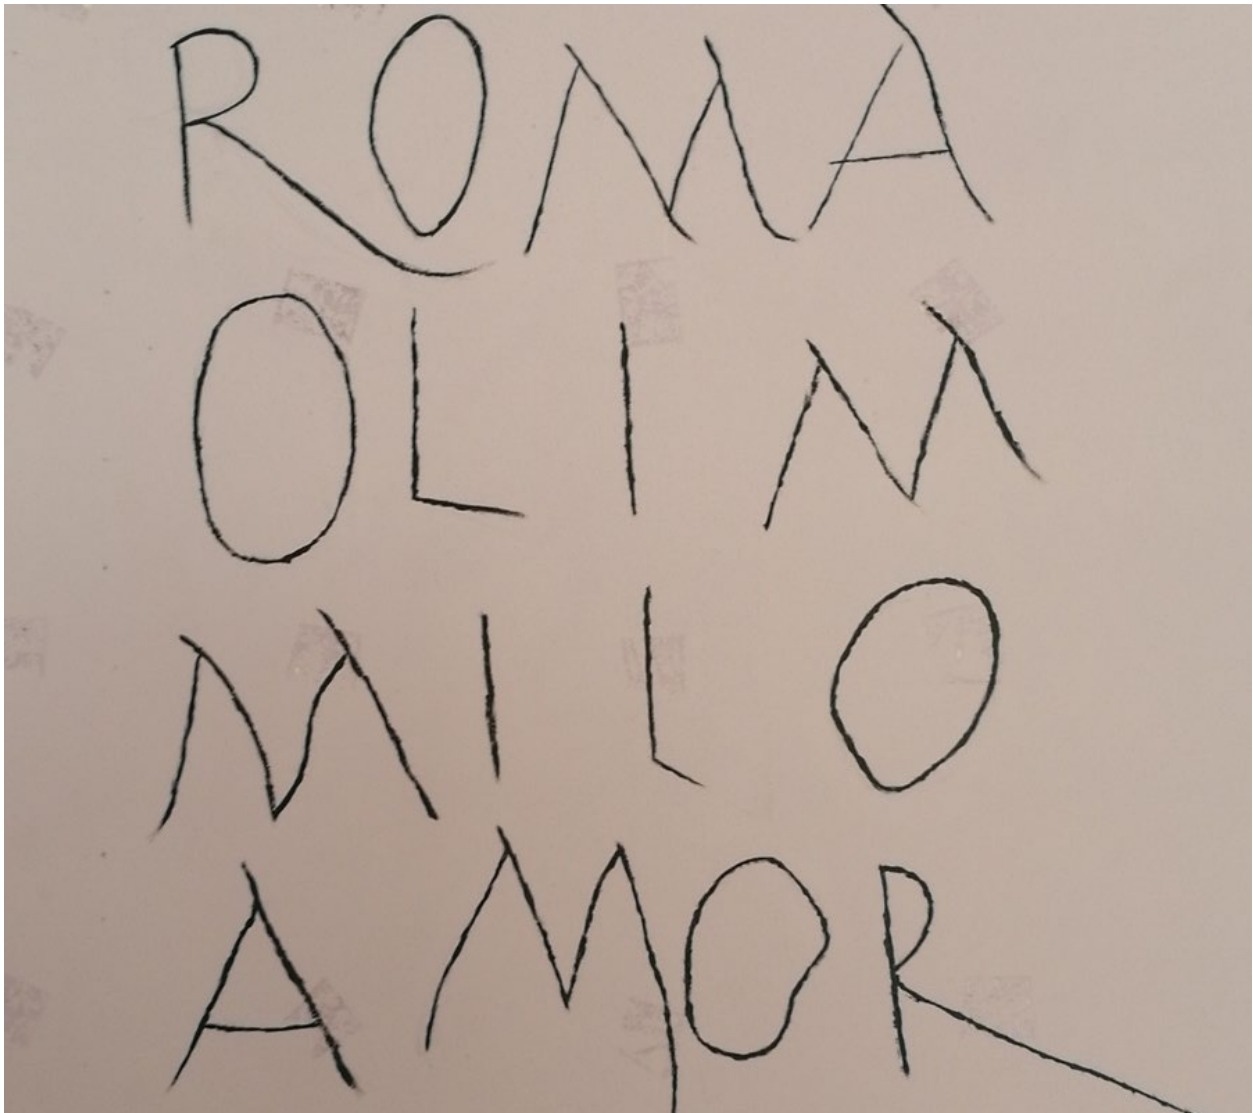 ROMA
OLIM
MILO
AMOR